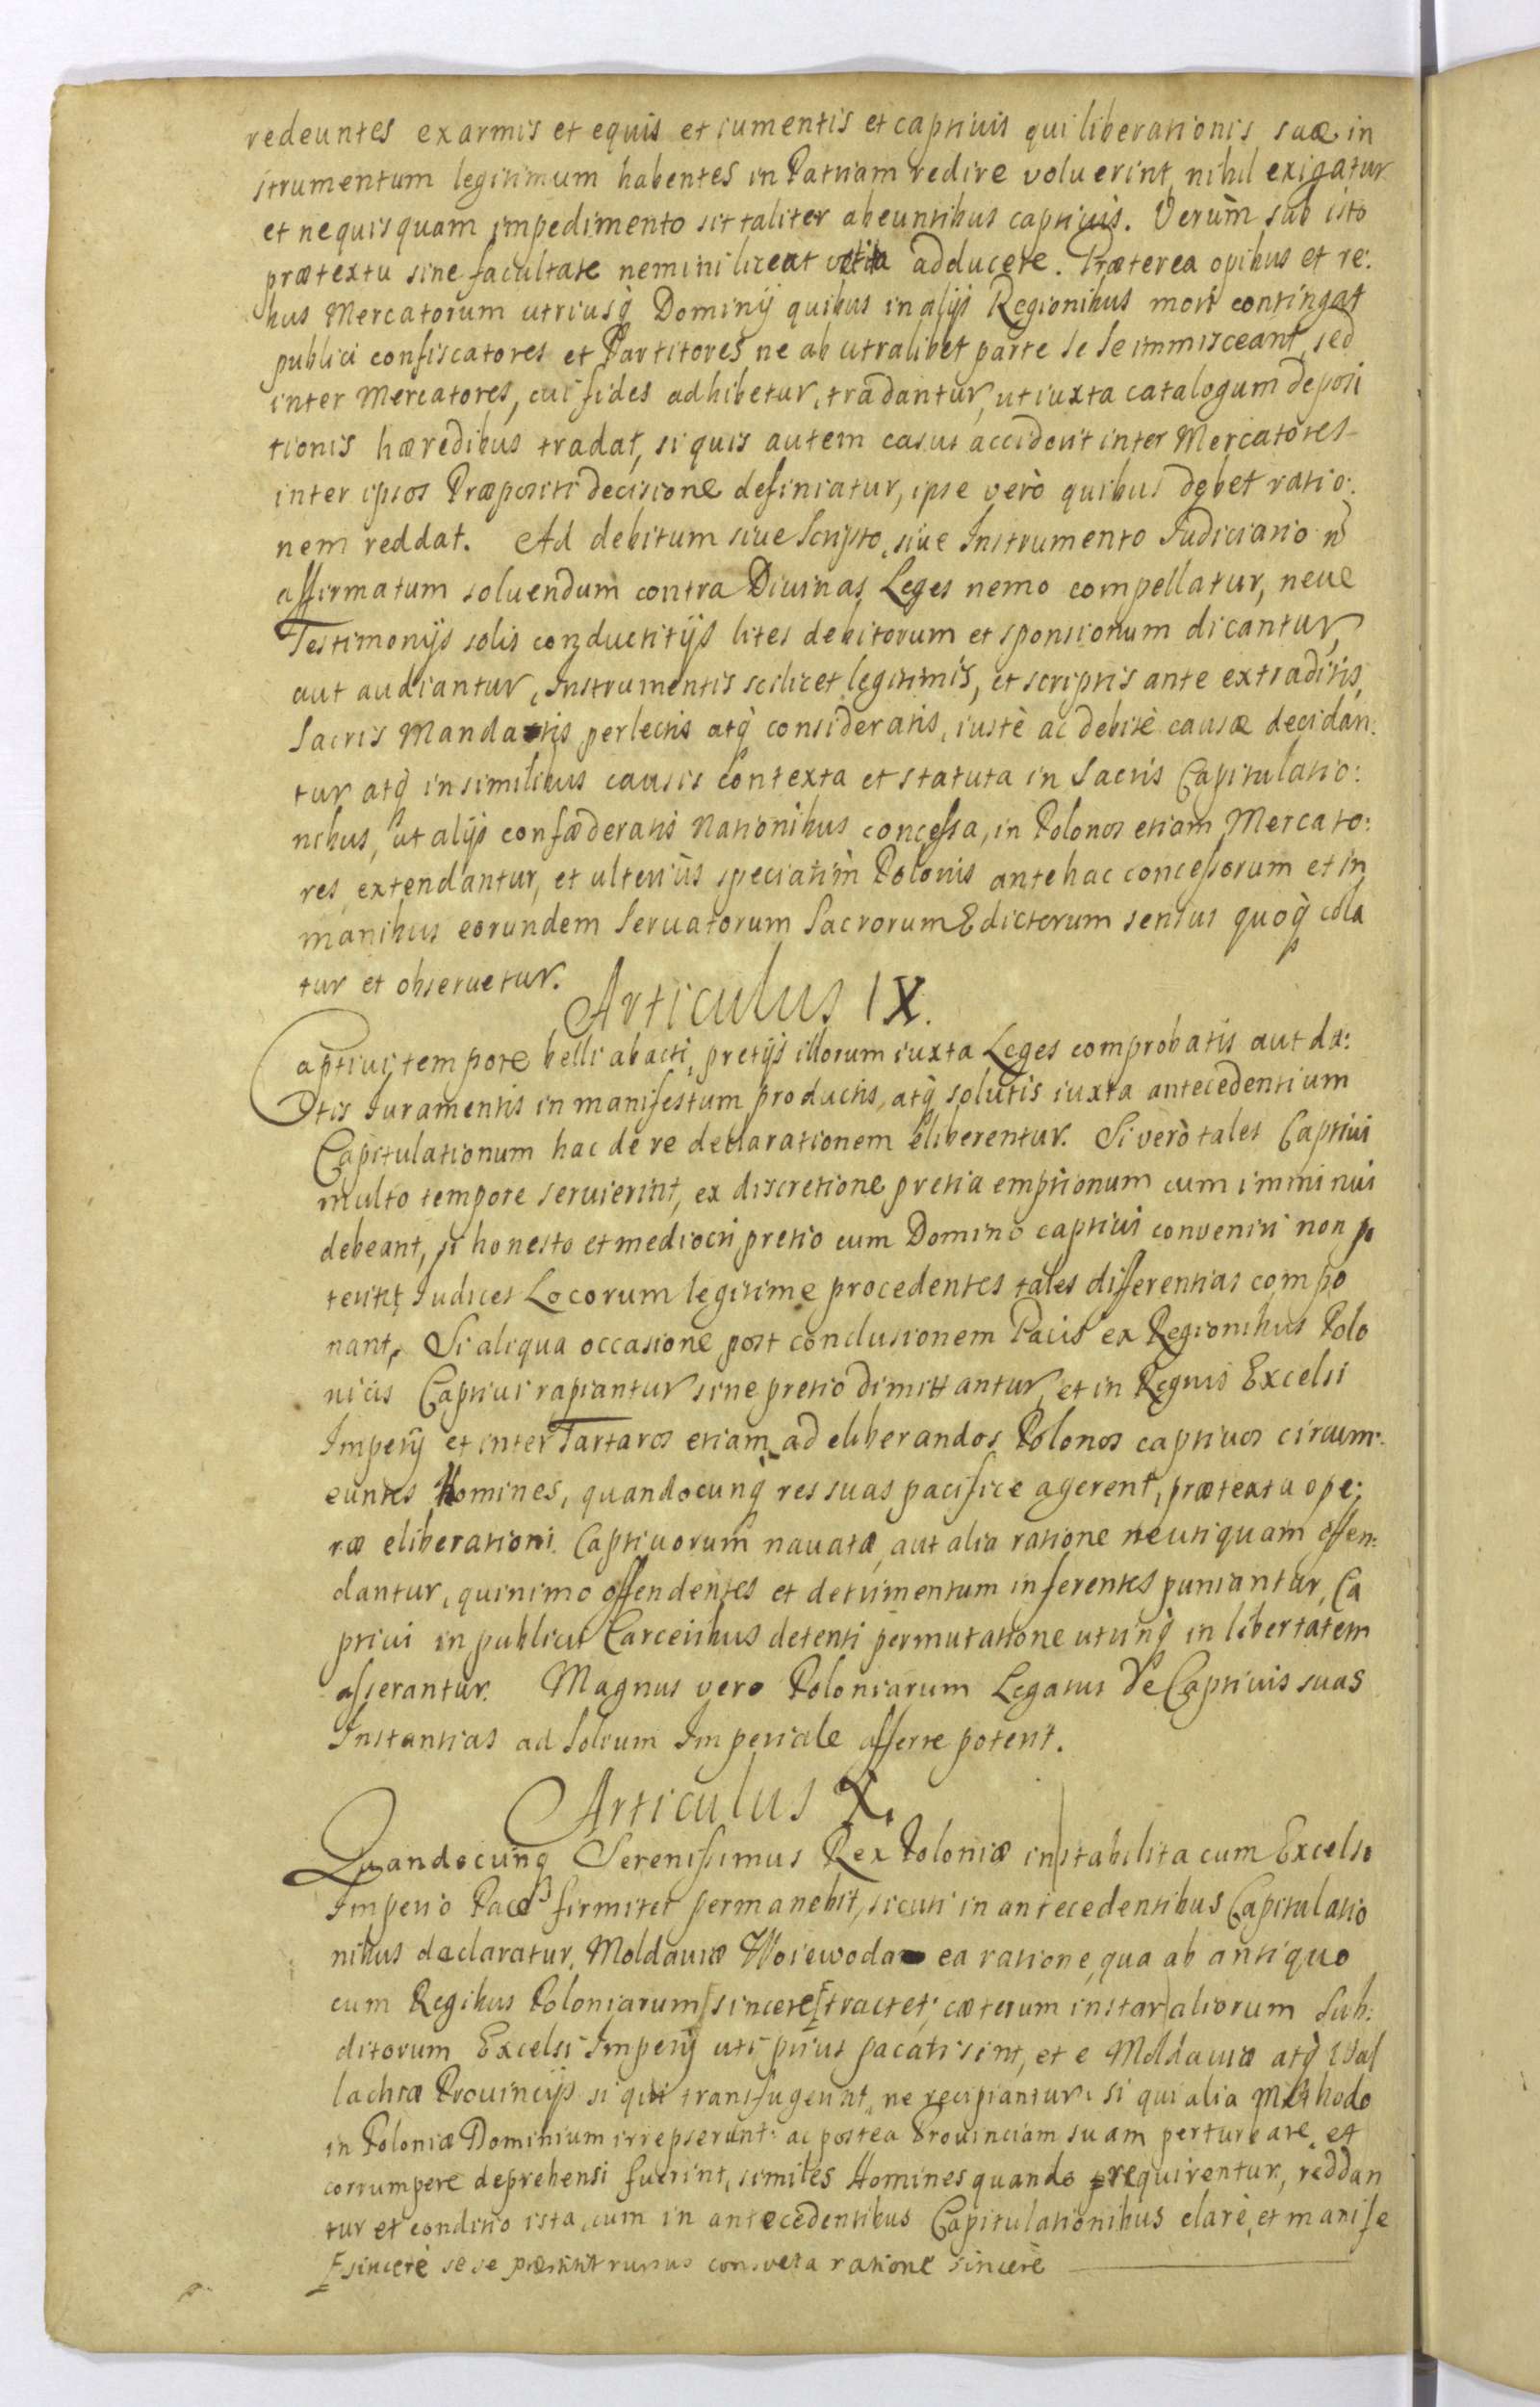 redeuntes ex armis et equis et iumentis et captiuis qui liberationis suæ in
strumentum legitimum habentes in Patriam redire voluerint, nihil exigatur
et nequisquam impedimento sit taliter abeuntibus captiuis. Verùm sub isto
prætextu sine facultate nemini liceat vetita adducere. Præterea opibus et re:
bus Mercatorum utriusq̀ Dominij quibus in alijs Regionibus mori contingat
publici confiscatores et Partitores ne ab utralibet parte se se immisceant, sed
inter Mercatores, cui fides adhibetur, tradantur, ut iuxta catalogum deposi
tionis hæredibus tradat, si quis autem casus acciderit inter Mercatores
inter ipsos Præpositi decisione definiatur, ipse verò quibus debet ratio:
nem reddat. Ad debitum siue Scripto, siue Instrumento Iudiciario n̄
affirmatum soluendum contra Diuinas Leges nemo compellatur, neue
Testimonijs solis conductitijs lites debitorum et sponsionum dicantur,
aut audiantur, Instrumentis scilicet legitimis, et scriptis ante extraditis,
Sacris Mandatis perlectis atq̀ consideratis, iustè ac debitè causæ decidan:
tur atq̀ in similibus causis contexta et statuta in Sacris Capitulatio:
nibus, ut alijs confæderatis Nationibus concessa, in Polonos etiam Mercato:
res extendantur, et ulteriùs speciatim̀ Polonis antehac concessorum et in
manibus eorundem Seruatorum Sacrorum Edictorum sensus quoq̀ cola
tur et obseruetur.
Articulus IX.
Captiui tempore belli abacti, pretijs illorum iuxta Leges comprobatis aut da:
tis Iuramentis in manifestum productis, atq̀ solutis iuxta antecedentium
Capitulationum hac de re declarationem eliberentur. Si verò tales Captiui
multo tempore seruierint, ex discretione pretia emptionum cum imminui
debeant, si honesto et mediocri pretio cum Domino captiui conveniri non po
terint, Iudices Locorum legitime procedentes tales differentias compo
nant, Si aliqua occasione post conclusionem Pacis ex Regionibus Polo
nicis Captiui rapiantur sine pretio dimittantur, et in Regnis Excelsi
Imperij et inter Tartaros etiam ad eliberandos Polonos captiuos circum:
euntes Homines, quandocunq̀ res suas pacifice agerent, prætextu ope:
ræ eliberationi Captiuorum nauatæ, aut alia ratione neutiquam offen:
dantur, quinimo offendentes et detrimentum inferentes puniantur, Ca
ptiui in publicis Carceribus detenti permutatione utrinq̀ in libertatem
asserantur. Magnus vero Poloniarum Legatus de Captiuis suas
Instantias ad Solium Imperiale afferre poterit.
Articulus X.
Quandocunq̀ Serenissimus Rex Poloniæ in stabilita cum Excelso
Imperio Pace firmiter permanebit, sicuti in antecedentibus Capitulatio
nibus declaratur, Moldauiæ Woiewoda ea ratione, qua ab antiquo
cum Regibus Poloniarum sincere tractet; cæterum instar aliorum Sub:
ditorum Excelsi Imperij uti prius pacati sint, et e Moldauiæ atq̀ Wal
lachiæ Prouincijs si qui transfugerint, ne recipiantur, si qui alia Methodo
in Poloniæ Dominium irrepserunt: ac postea Prouinciam suam perturbare, et
corrumpere deprehensi fuerint, similes Homines quando requirentur, reddan
tur et conditio ista, cum in antecedentibus Capitulationibus clarè, et manife
sincerè se se præstitit rursus consueta ratione sincerè